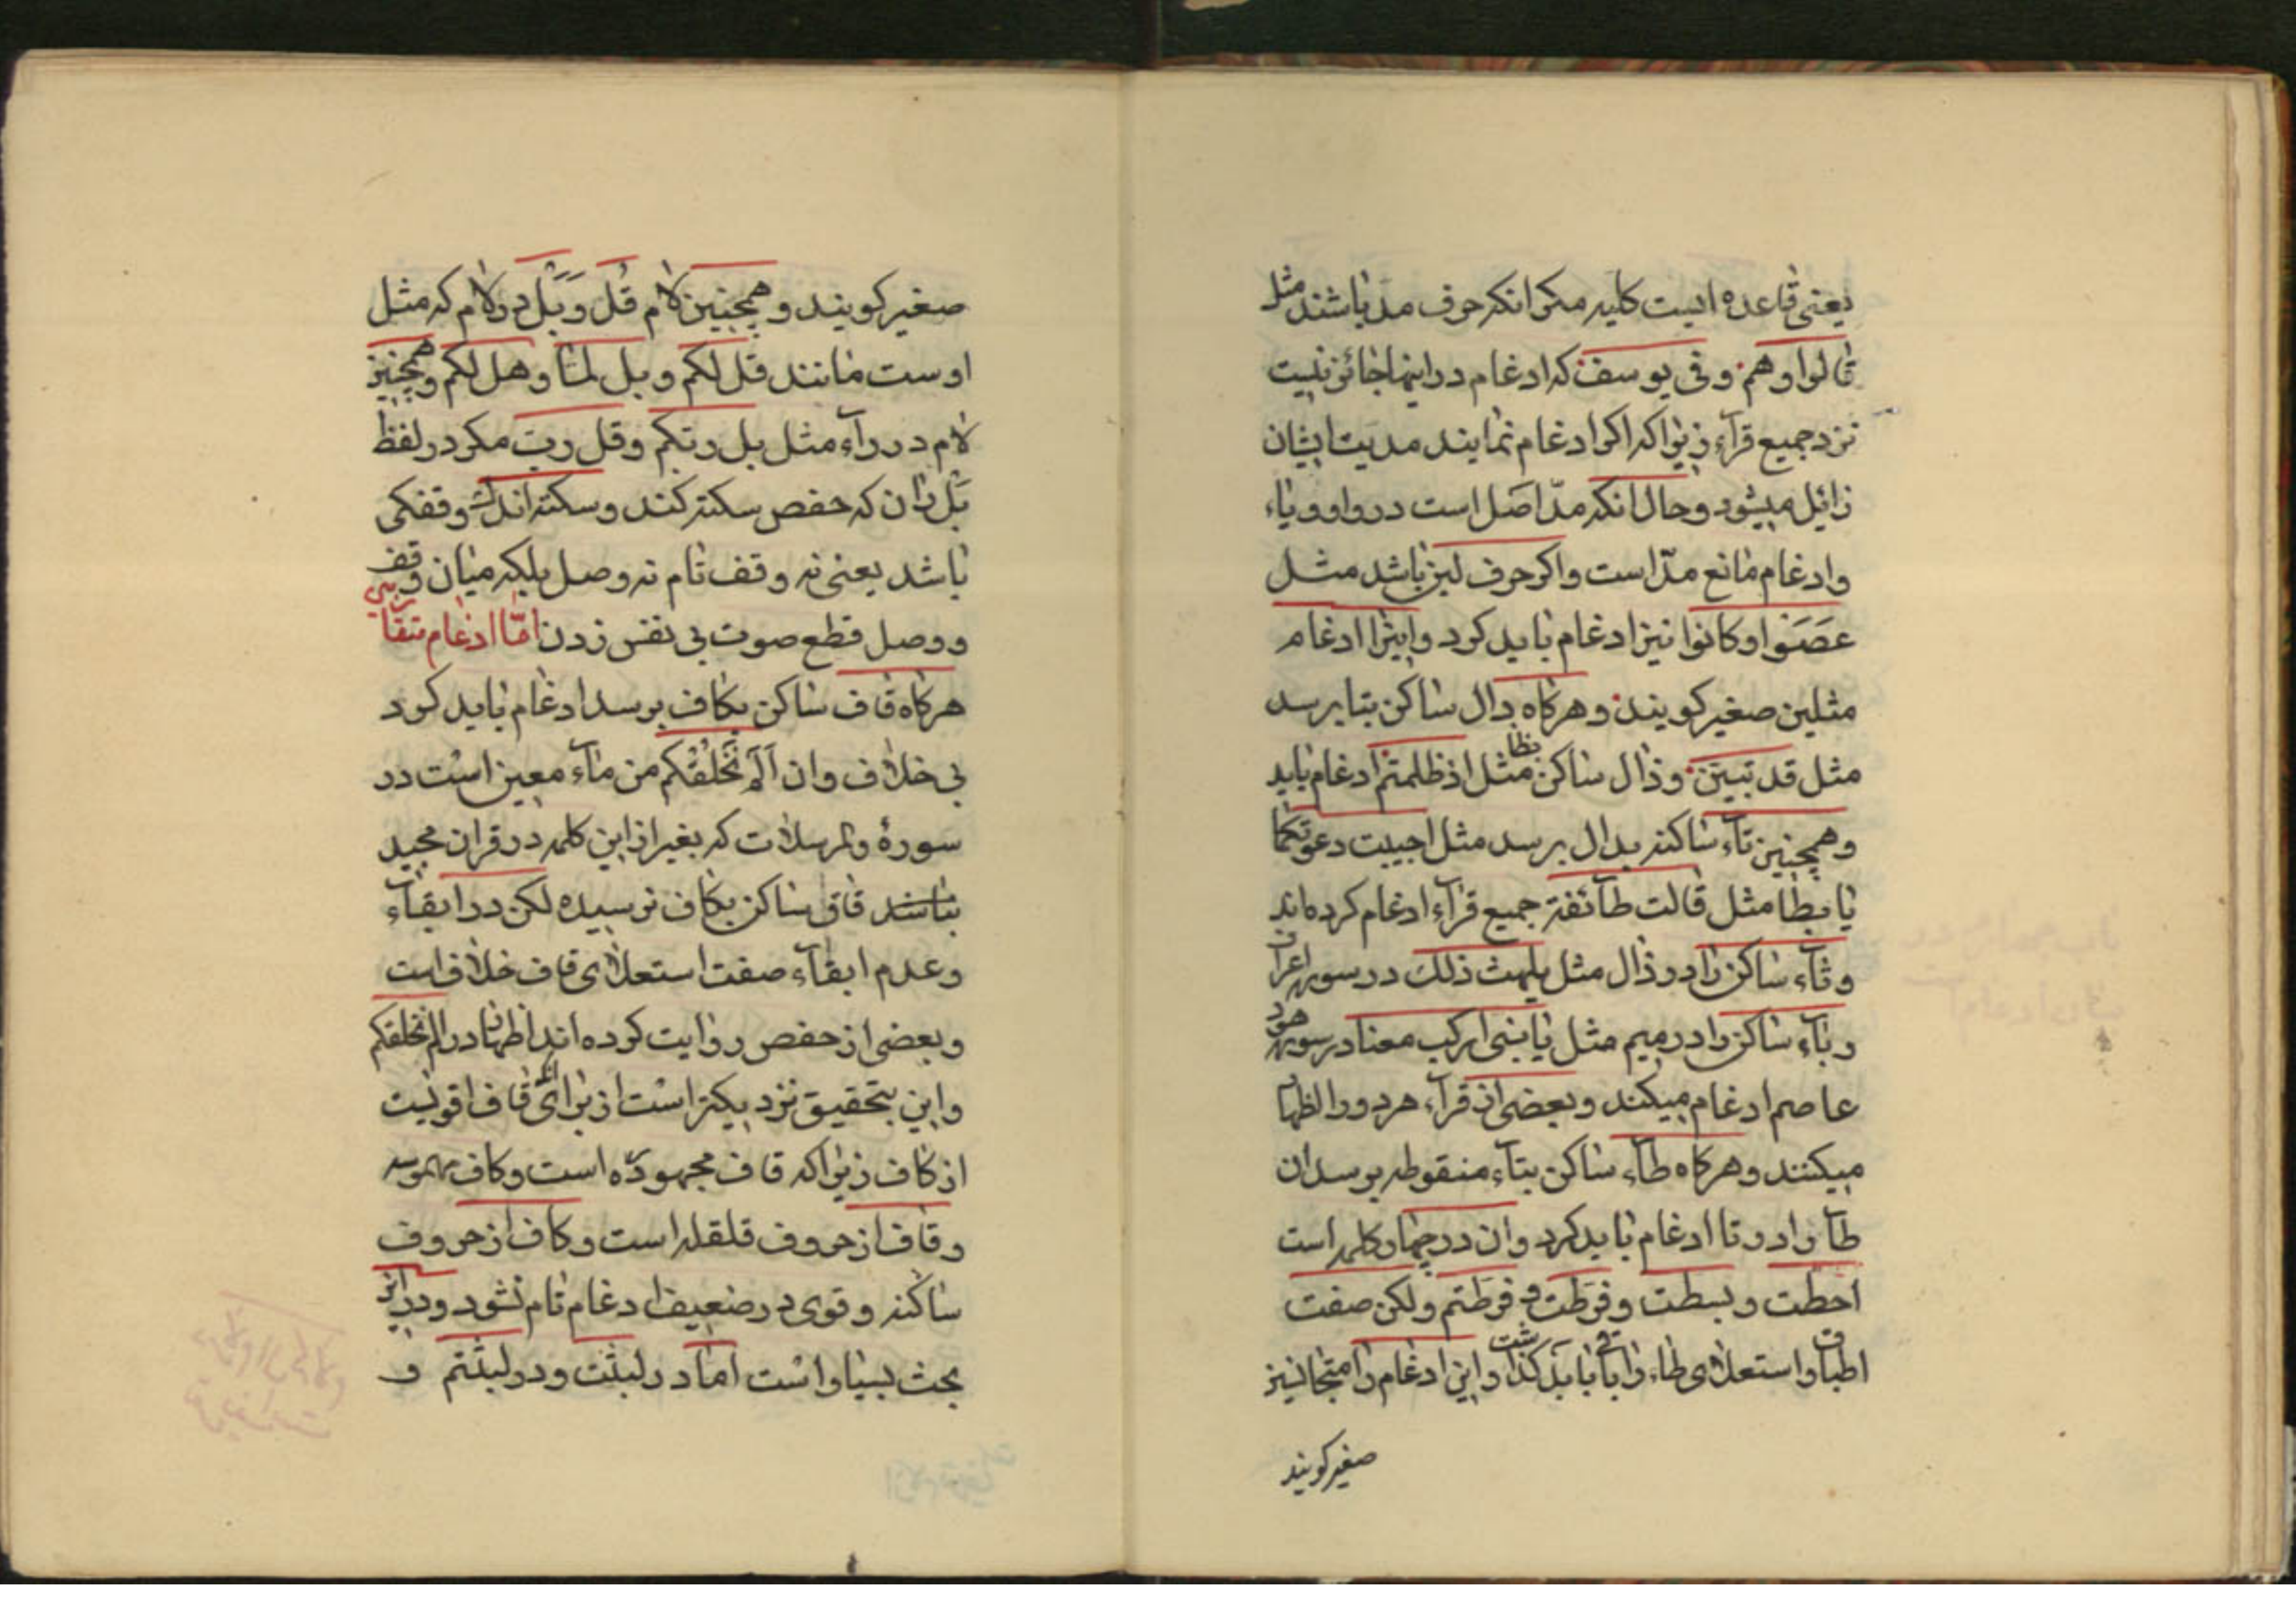 یعنی قاعده ایست کلیه مکر انکه حرف مد باشند مثل
قالوا وهم وفی یوسف که ادغام در اینها جائز نیست
نزد جمیع قرآء زیرا که اکر ادغام نمایند مدیت ایشان
زایل میشود وحال انکه مدّ اصل است در واو ویاء
وادغام مانع مدّ است واکر حرف لین باشد مثل
عَصَوا وکانوا نیز ادغام باید کرد واینرا ادغام
مثلین صغیر کویند وهرکاه دال ساکن بتا برسد
مثل قد تبین وذال ساکن بظا مثل اذ ظلمتم ادغام باید
وهمچنین تآء ساکنه بدال برسد مثل اجیبت دعوتکما
یا بطا مثل قالت طآئفة جمیع قرآء ادغام کرده اند
وثآء ساکن را در ذال مثل یلهث ذلک در سوره اعراف
وبآء ساکن را در میم مثل یا بنی ارکب معنا در سوره هود
عاصم ادغام میکند وبعضی از قرآء هر دو را اظهار
میکنند وهرکاه طآء ساکن بتآء منقوطه برسد ان
طآ را در تا ادغام باید کرد وان در چهار کلمه است
احطت وبسطت وفرطت وفرطتم ولکن صفت
اطباق واستعلای طاء را باقی باید کذاشت واین ادغام را متجانسین
صغیر کویند
صغیر کویند وهمچنین لام قُل وَبَل در لام که مثل
اوست مانند قل لکم وبل لمّا وهل لکم وهمچنین
لام در رآء مثل بل ربکم وقل رب مکر در لفظ
بَل ران که حفص سکته کند وسکته اندک وقفکی
باشد یعنی نه وقف تام نه وصل بلکه میان وقف
ووصل قطع صوت بی نفس زدن امّا ادغام متقاربین
هرکاه قاف ساکن بکاف برسد ادغام باید کرد
بی خلاف وان اَلَم نَخلُقکُم من مآء مهین است در
سورۀ والمرسلات که بغیر از این کلمه در قران مجید
نباشد قاف ساکن بکاف نرسیده لکن در ابقآء
وعدم ابقآء صفت استعلای قاف خلاف است
وبعضی از حفص روایت کرده اند اظهار در الم نخلقکم
واین بتحقیق نزدیکتر است از برای انکه قاف اقویست
از کاف زیرا که قاف مجهوره است وکاف مهموسه
وقاف از حروف قلقله است وکاف از حروف
ساکنه وقوی در ضعیف ادغام تام نشود ودر این
بحث بسیار است امّا در لبثت ودر لبثتم و